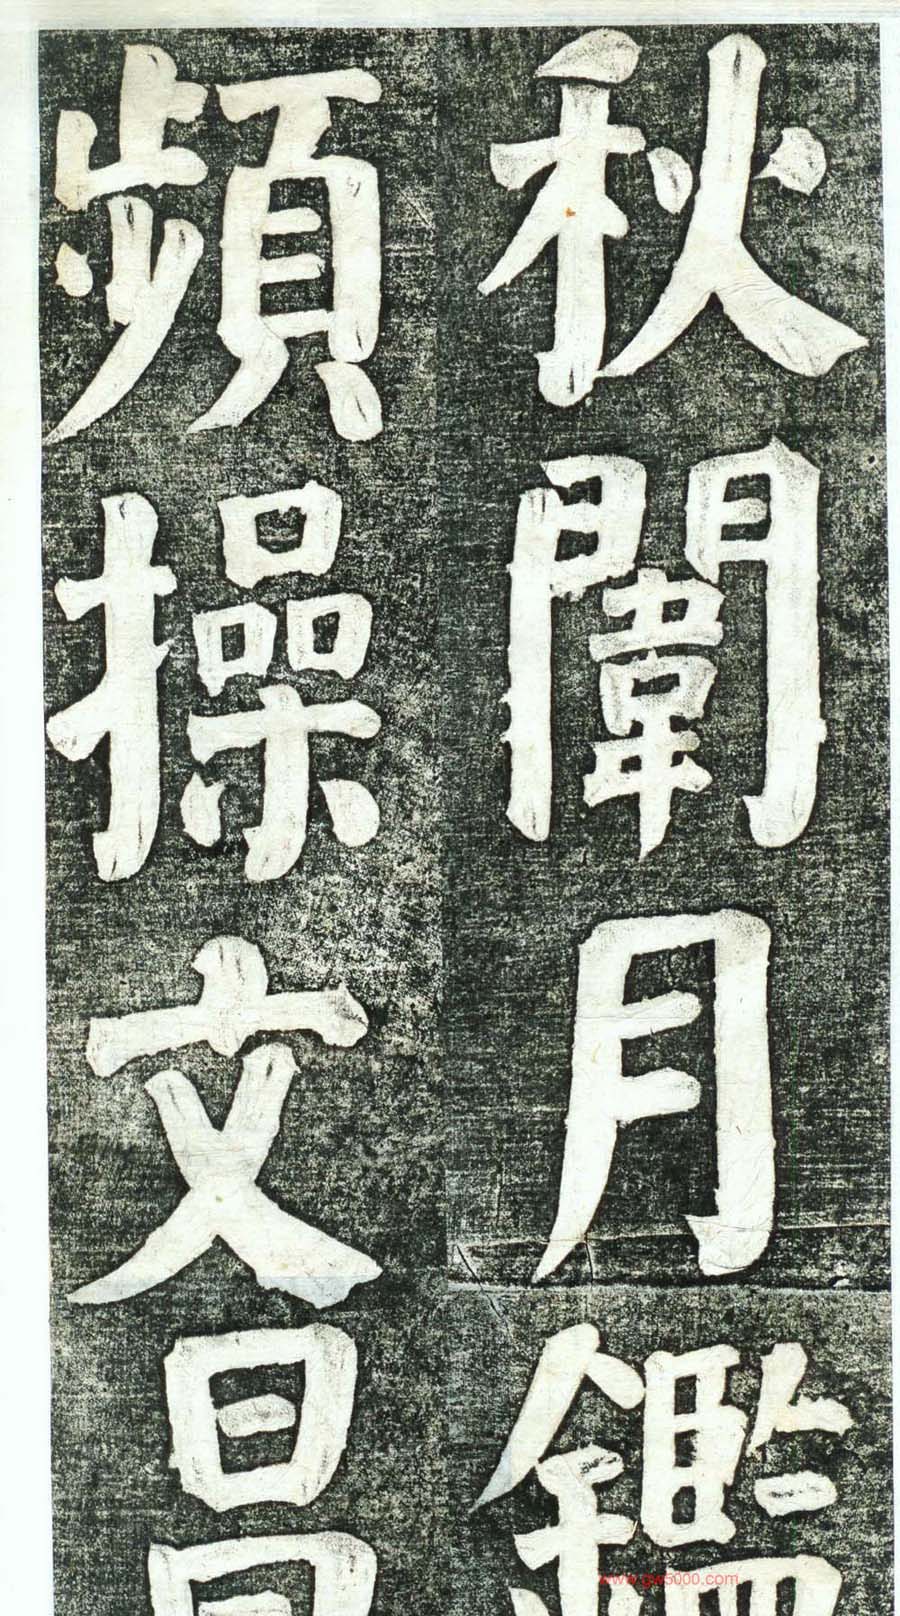 秋闈月鑑
頻操文昌
www.gw5000.com